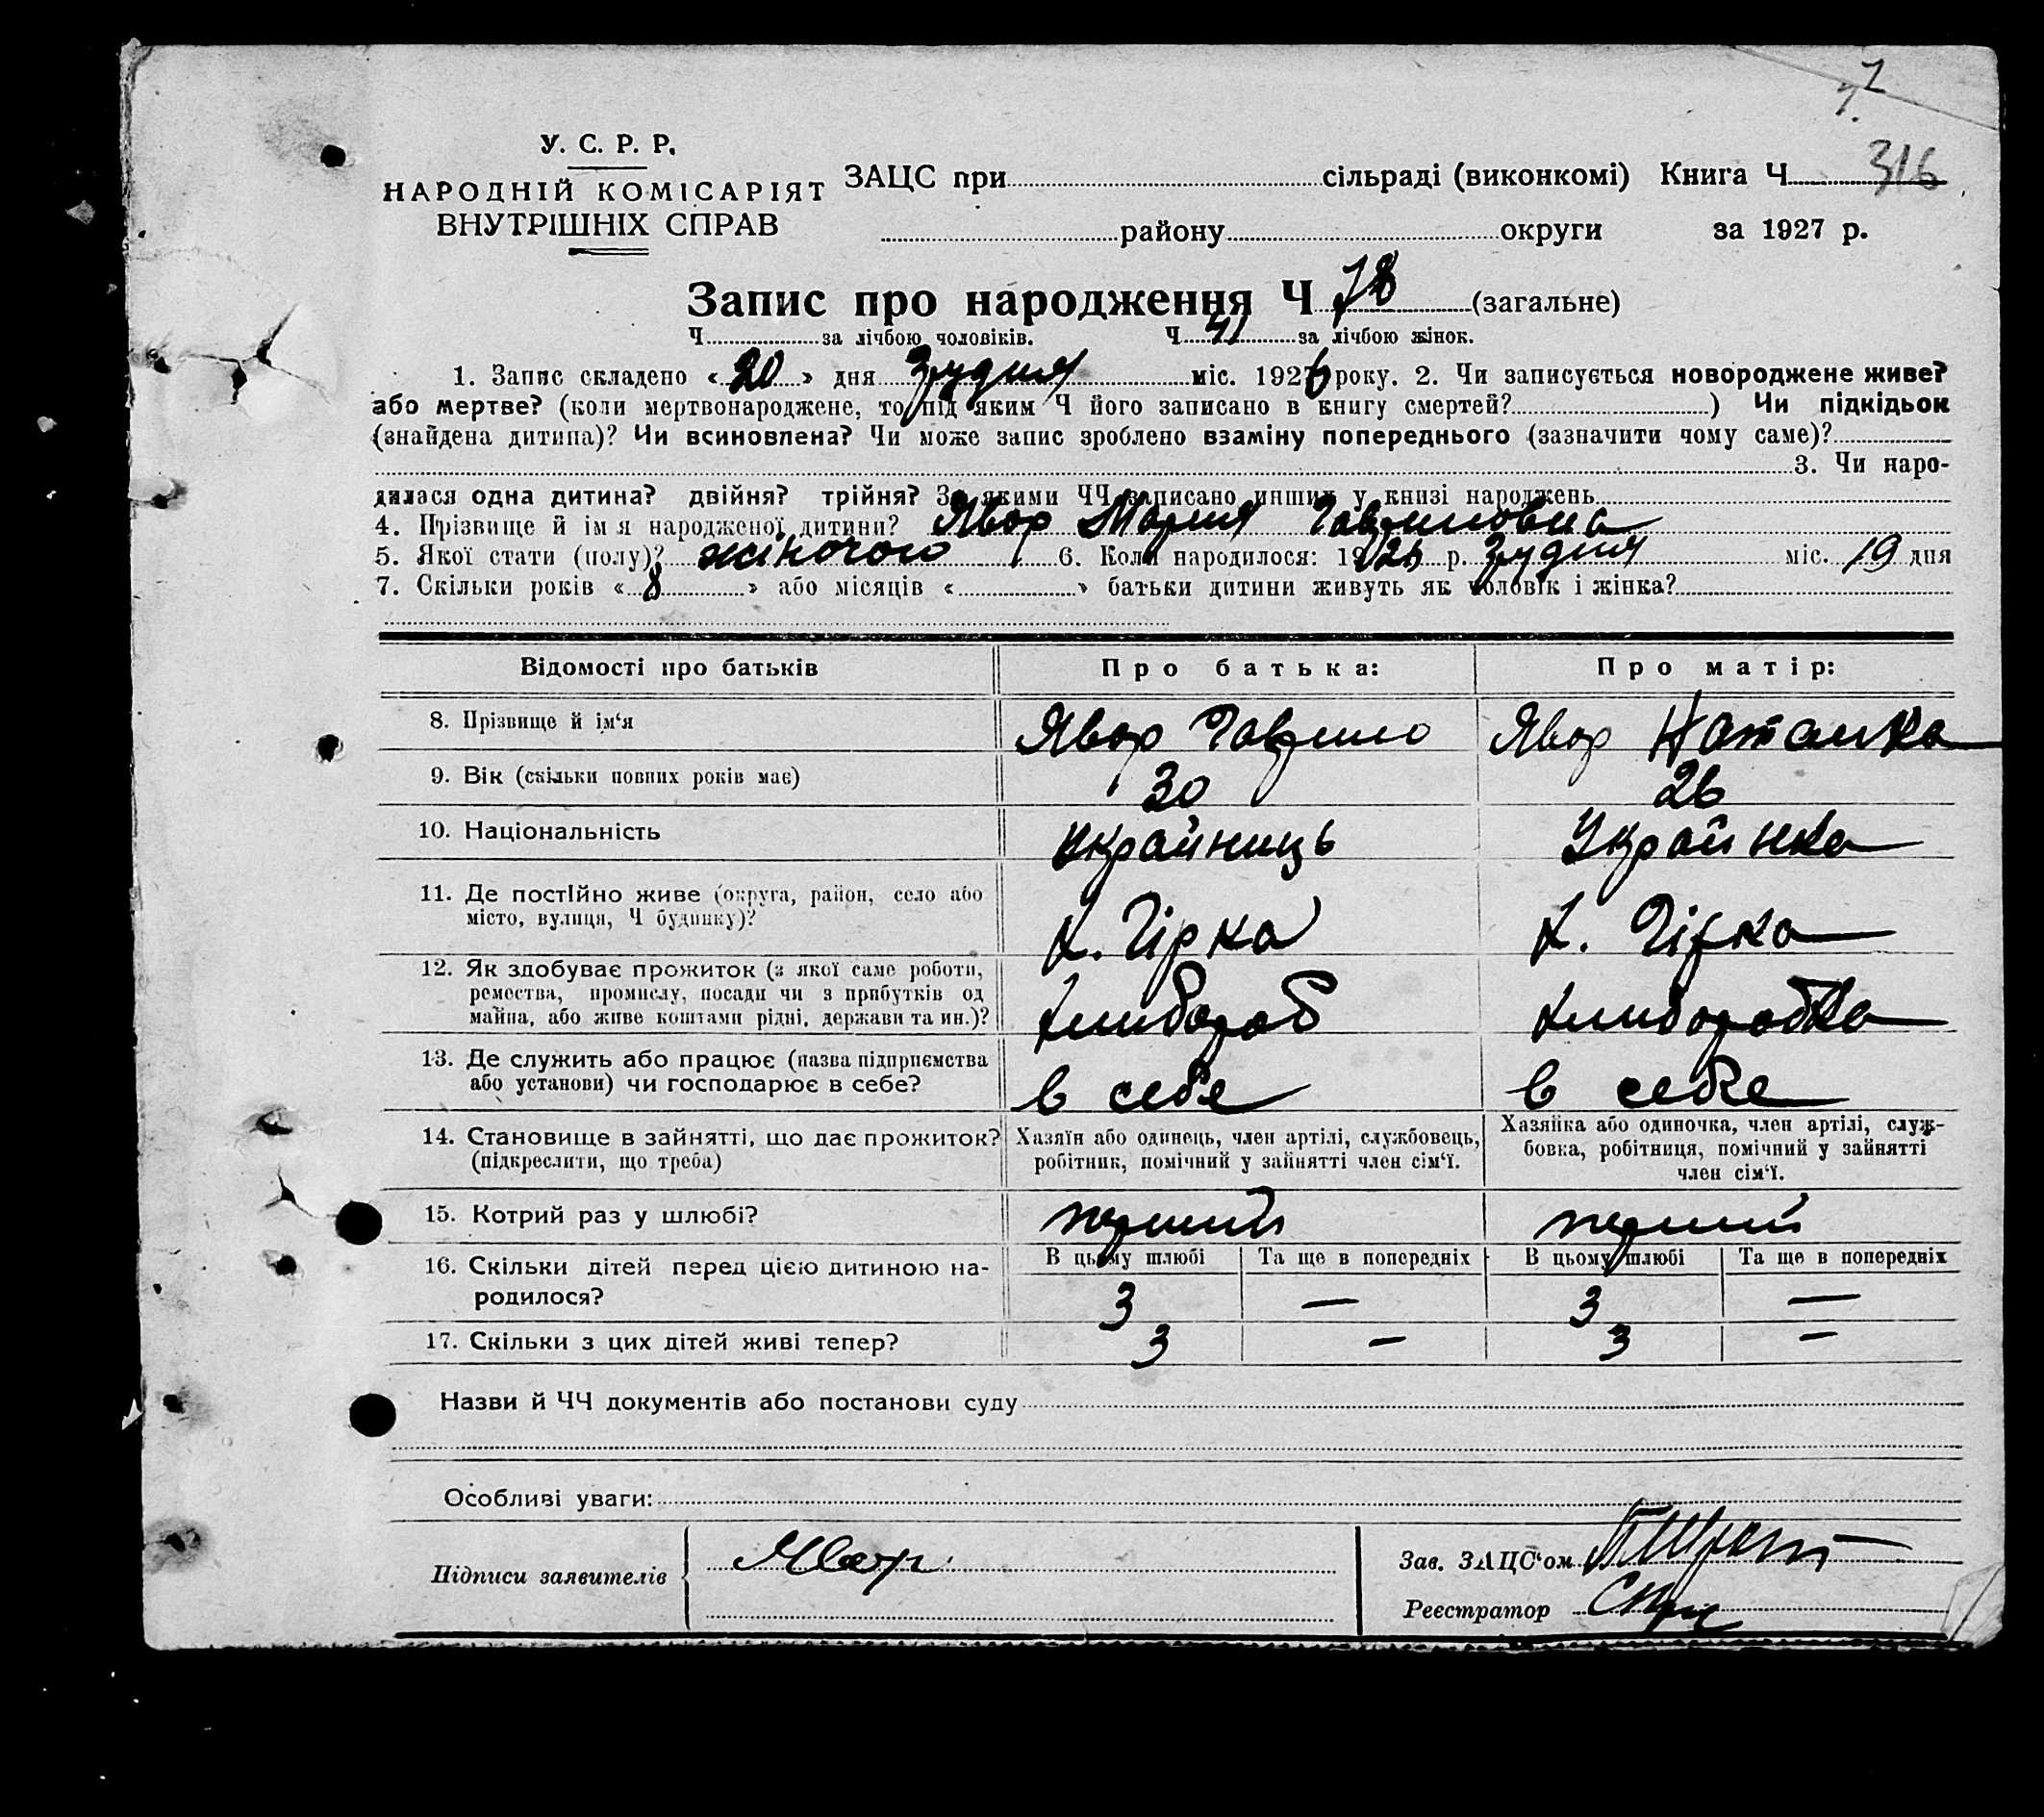 7
7.
У. С. Р. Р.
НАРОДНІЙ КОМІСАРІЯТ
ВНУТРІШНІХ СПРАВ
ЗАЦС при сільраді (виконкомі) Книга Ч 316
району округи за 1927 р.
Запис про народження Ч 78 (загальне)
Ч за лічбою чоловіків. Ч 41 за лічбою жінок.
1. Запис складено « 20 » дня Грудня міс. 1926 року. 2. Чи записується новороджене живе?
або мертве? (коли мертвонароджене, то під яким Ч його записано в книгу смертей? ) Чи підкідьок
(знайдена дитина)? Чи всиновлена? Чи може запис зроблено взаміну попереднього (зазначити чому саме)?
3. Чи наро-
дилася одна дитина? двійня? трійня? За якими ЧЧ записано инших у книзі народжень
4. Прізвище й ім'я народженої дитини? Явор Мария Гавриловна
5. Якої стати (полу)? жіночою 6. Коли народилося: 1926 р. Грудня міс. 19 дня
7. Скільки років « 8 » або місяців « » батьки дитини живуть як чоловік і жінка?
Відомості про батьків Про батька: Про матір:
8. Прізвище й ім'я Явор Гаврило Явор Наталка
9. Вік (скільки повних років має) 30 26
10. Національність Украйниць Украйнка
11. Де постійно живе (округа, район, село або
місто, вулиця, Ч будинку)? х. Гірка х. Гірка
12. Як здобуває прожиток (з якої саме роботи,
ремества, промислу, посади чи з прибутків од
майна, або живе коштами рідні, держави та ин.)? хлибороб хлиборобка
13. Де служить або працює (назва підприємства
або установи) чи господарює в себе? в себе в себе
14. Становище в зайнятті, що дає прожиток?
(підкреслити, що треба)
Хазяїн або одинець, член артілі, службовець,
робітник, помічний у зайнятті член сім'ї.
Хазяйка або одиночка, член артілі, служ-
бовка, робітниця, помічний у зайнятті
член сім'ї.
15. Котрий раз у шлюбі? перший перший
В цьому шлюбі Та ще в попередніх В цьому шлюбі Та ще в попередніх
16. Скільки дітей перед цією дитиною на-
родилося? 3 — 3 —
17. Скільки з цих дітей живі тепер? 3 — 3 —
Назви й ЧЧ документів або постанови суду
Особливі уваги:
Підписи заявителів Явор
Зав. ЗАЦС'ом
Реєстратор